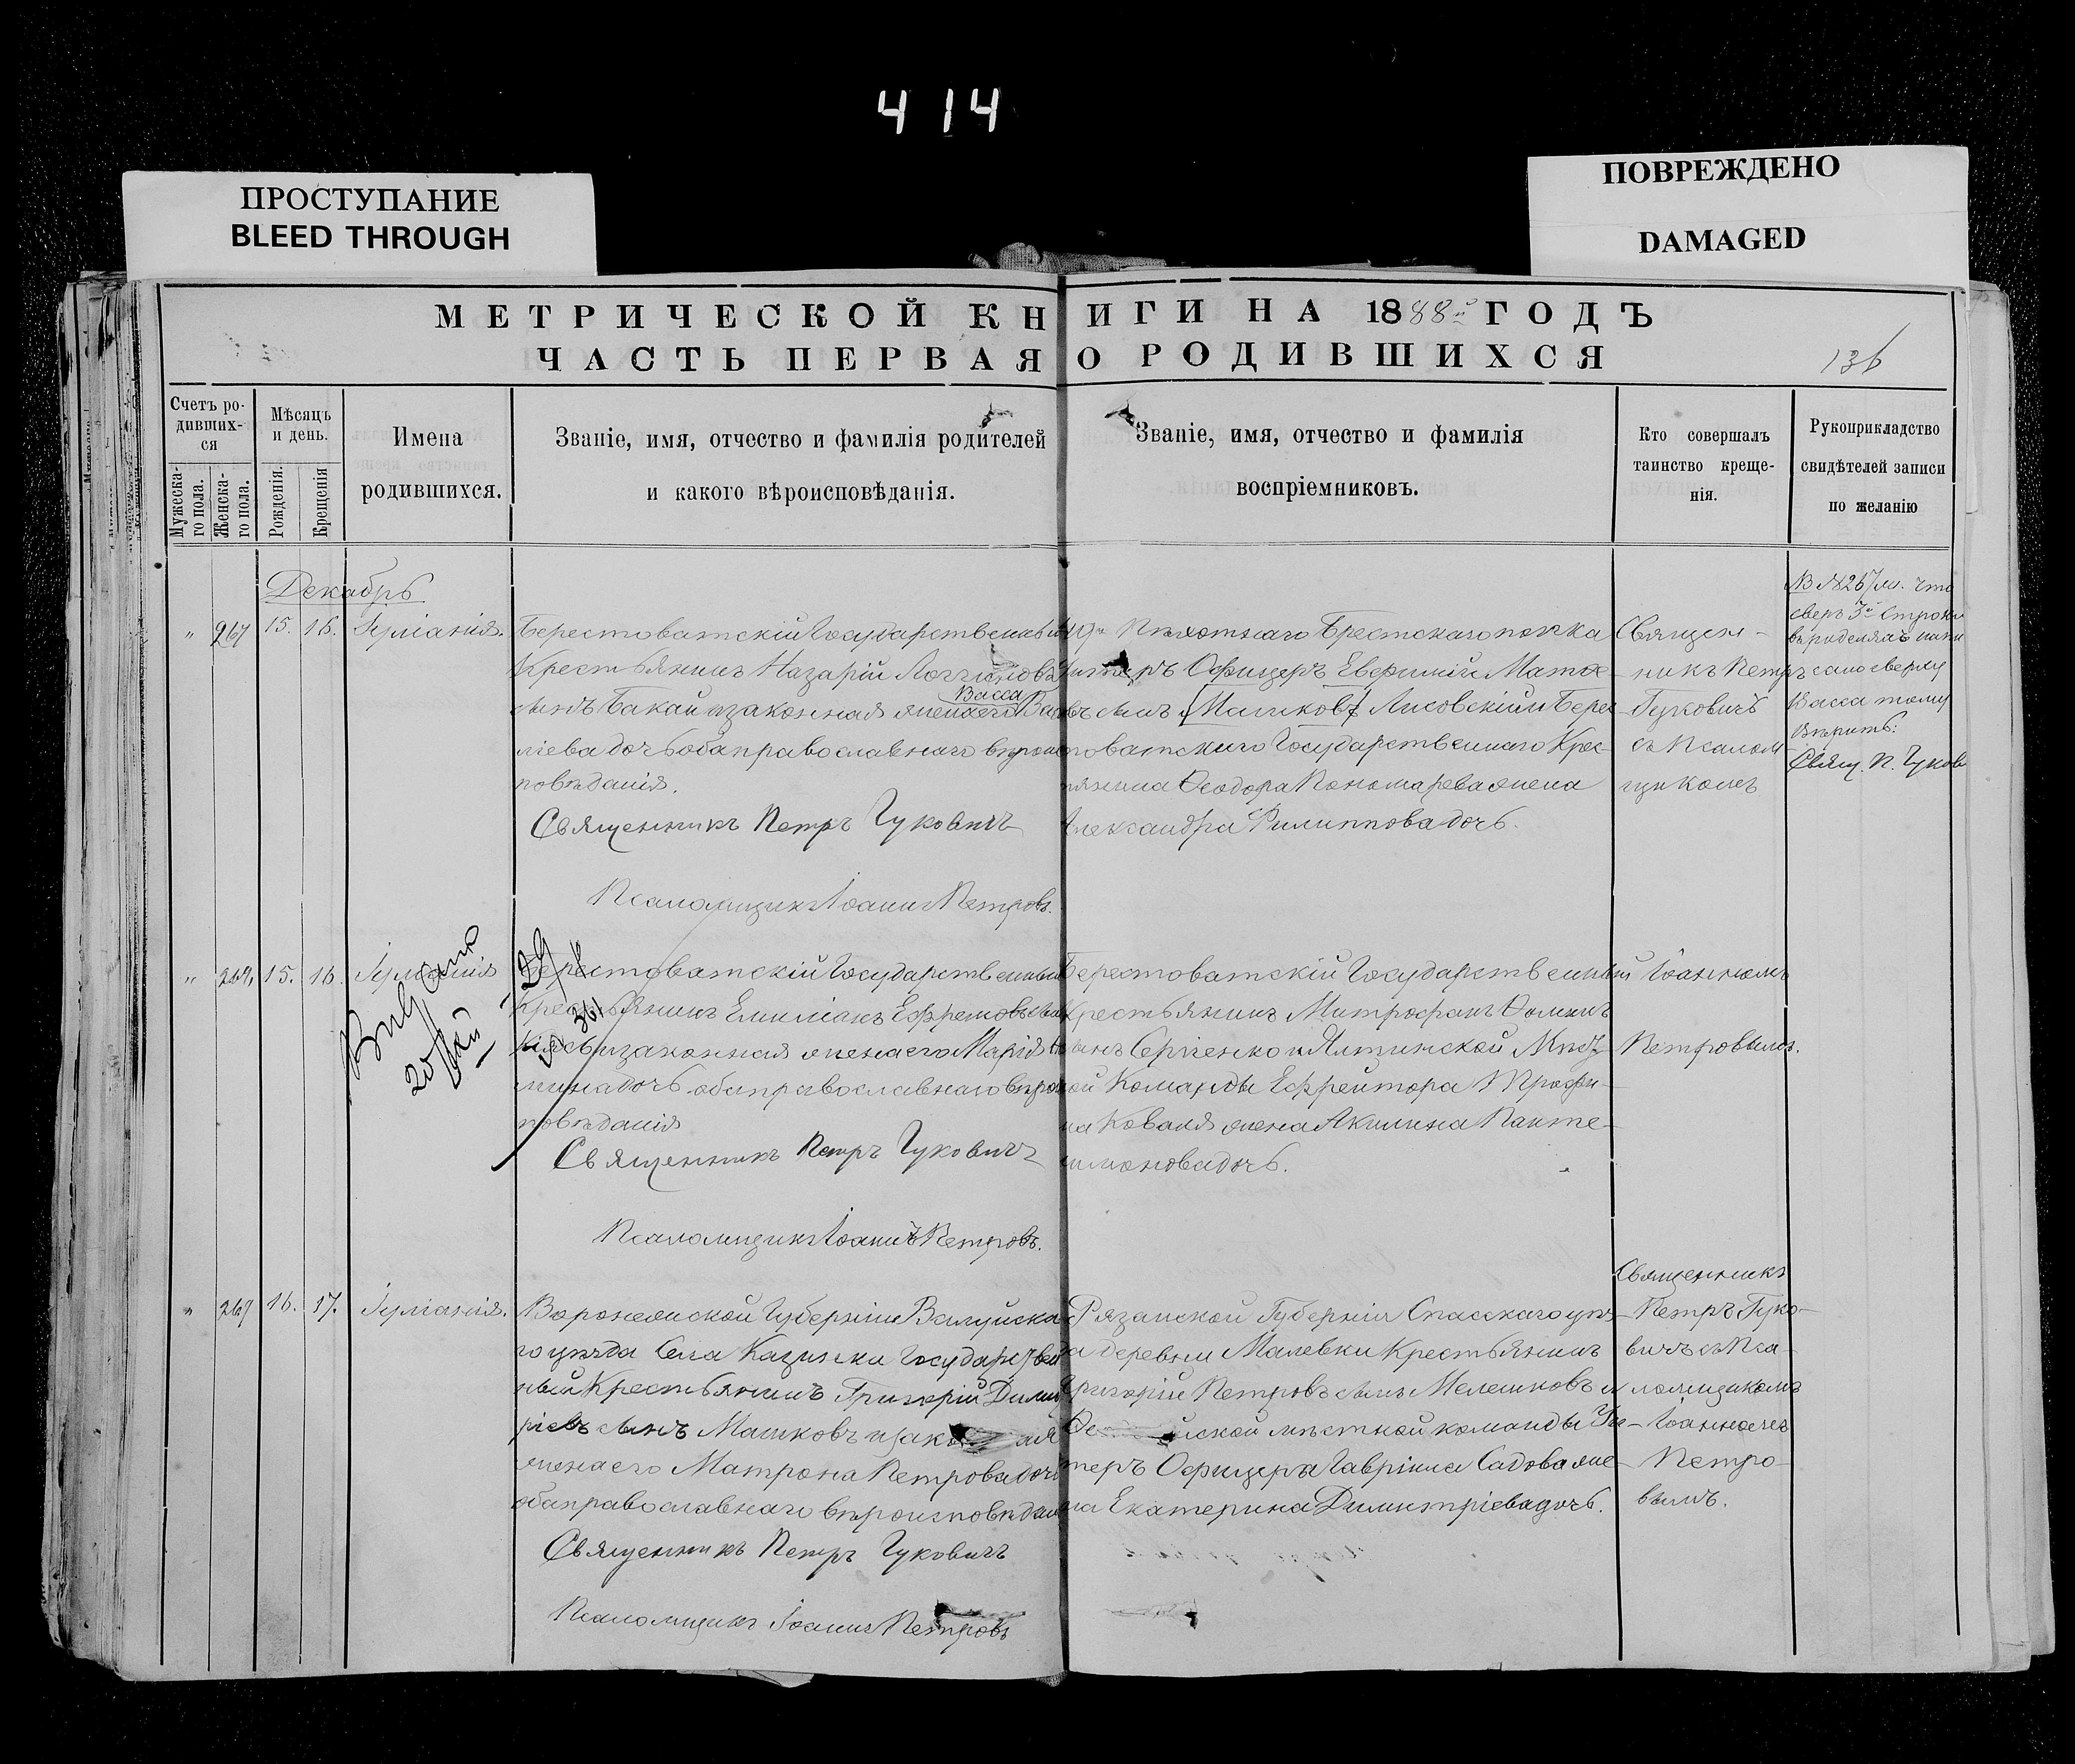 414
ПРОСТУПАНИЕ
BLEED THROUGH
ПОВРЕЖДЕНО
DAMAGED
МЕТРИЧЕСКОЙ КНИГИ НА 1888й ГОДЪ
ЧАСТЬ ПЕРВАЯ О РОДИВШИХСЯ
136
Счетъ ро-
дивших-
ся
Мужеска-
го пола.
Женска-
го пола.
Мѣсяцъ
и день.
Рожденія.
Крещенія
Имена
родившихся.
Званіе, имя, отчество и фамилія родителей
и какого вѣроисповѣданія.
Званіе, имя, отчество и фамилія
воспріемниковъ.
Кто совершалъ
таинство креще-
нія.
Рукоприкладство
свидѣтелей записи
по желанію
Декабрь
" 267 15. 16. Іуліанія.
Берестоватскій Государственный
Крестьянинъ Назарій
Васса
сынъ Бакай и законная жена его
дочь оба православнаго вѣроис
повѣданія.
Священникъ Петръ Гуковичъ
Псаломщикъ Іоаннъ Петровъ.
49го Пѣхотнаго Брестскаго полка
Офицеръ Евфимій Матѳе
въ сынъ Лисовскій и Берес
товатскаго Государственнаго Крес-
тянина Ѳеодора Пономарева жена
Александра Филиппова дочь.
Священ-
никъ Петръ
Гуковичъ
съ Псалом-
щикомъ
что
сверх 3й строки
Васса тому
вѣрить:
Свящ. П. Гукови
" 15. 16. Іуліанія
Выдано
20
Берестоватскій Государственный
Крестьянинъ Емиліанъ Ефремовъ сын
и законная жена его Марія
дочь оба православнаго вѣроис
повѣданія
Священникъ Петръ Гуковичъ
Псаломщикъ Іоаннъ Петровъ.
Берестоватскій Государственный
Крестьянинъ Митрофанъ Ѳоминъ
сынъ Сергіенко и Ялтинской Мѣст-
ной Команды Ефрейтора Трофи-
ма Коваля жена Акилина Панте-
лимонова дочь.
Іоанномъ
Петровымъ.
" 269 16. 17. Іуліанія.
Воронежской Губерніи Валуйска
го уѣзда Села Казинки Государствен
ный Крестьянинъ Григорій Димит
ріевъ сынъ Машковъ и законная
жена его Матрона Петрова дочь
оба православнаго вѣроисповѣдан
Священникъ Петръ Гуковичъ
Псаломщикъ Іоаннъ Петровъ
Рязанской Губерніи Спасскаго уѣз-
да деревни Малевки Крестьянинъ
Григорій Петровъ сынъ Мелешковъ и
мѣстной команды Ун-
теръ Офицера Гавріила Садова же-
на Екатерина Димитріева дочь.
Священникъ
Петръ Гуко-
вичъ съ Пса-
ломщикомъ
Іоанномъ
Петро-
вымъ.